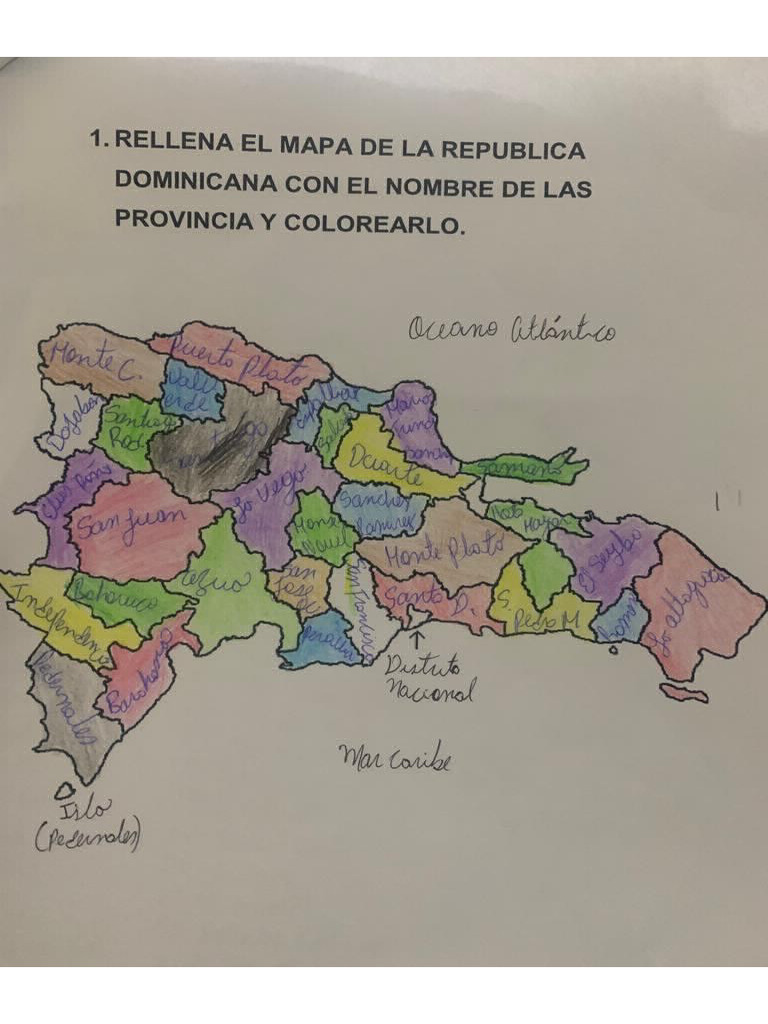 1. RELLENA EL MAPA DE LA REPUBLICA
DOMINICANA CON EL NOMBRE DE LAS
PROVINCIA Y COLOREARLO.
Oceano Atlántico
Puerto Plata
Monte C.
Valv
erde
Espaillat
María
Dajabon
Santiago
Rod
Duarte
Samana
Elias Piña
San Juan
La Vega
Sanchez
Ramirez
Hato
Mayor
Monse
Nouel
Monte Plata
El Seybo
La altagracia
Azua
San
Jose
Bahoruco
Independencia
Santo D.
S.
Pedro M
Peravia
Distrito
Nacional
Pedernales
Barahona
Mar Caribe
Isla
(Pedernales)